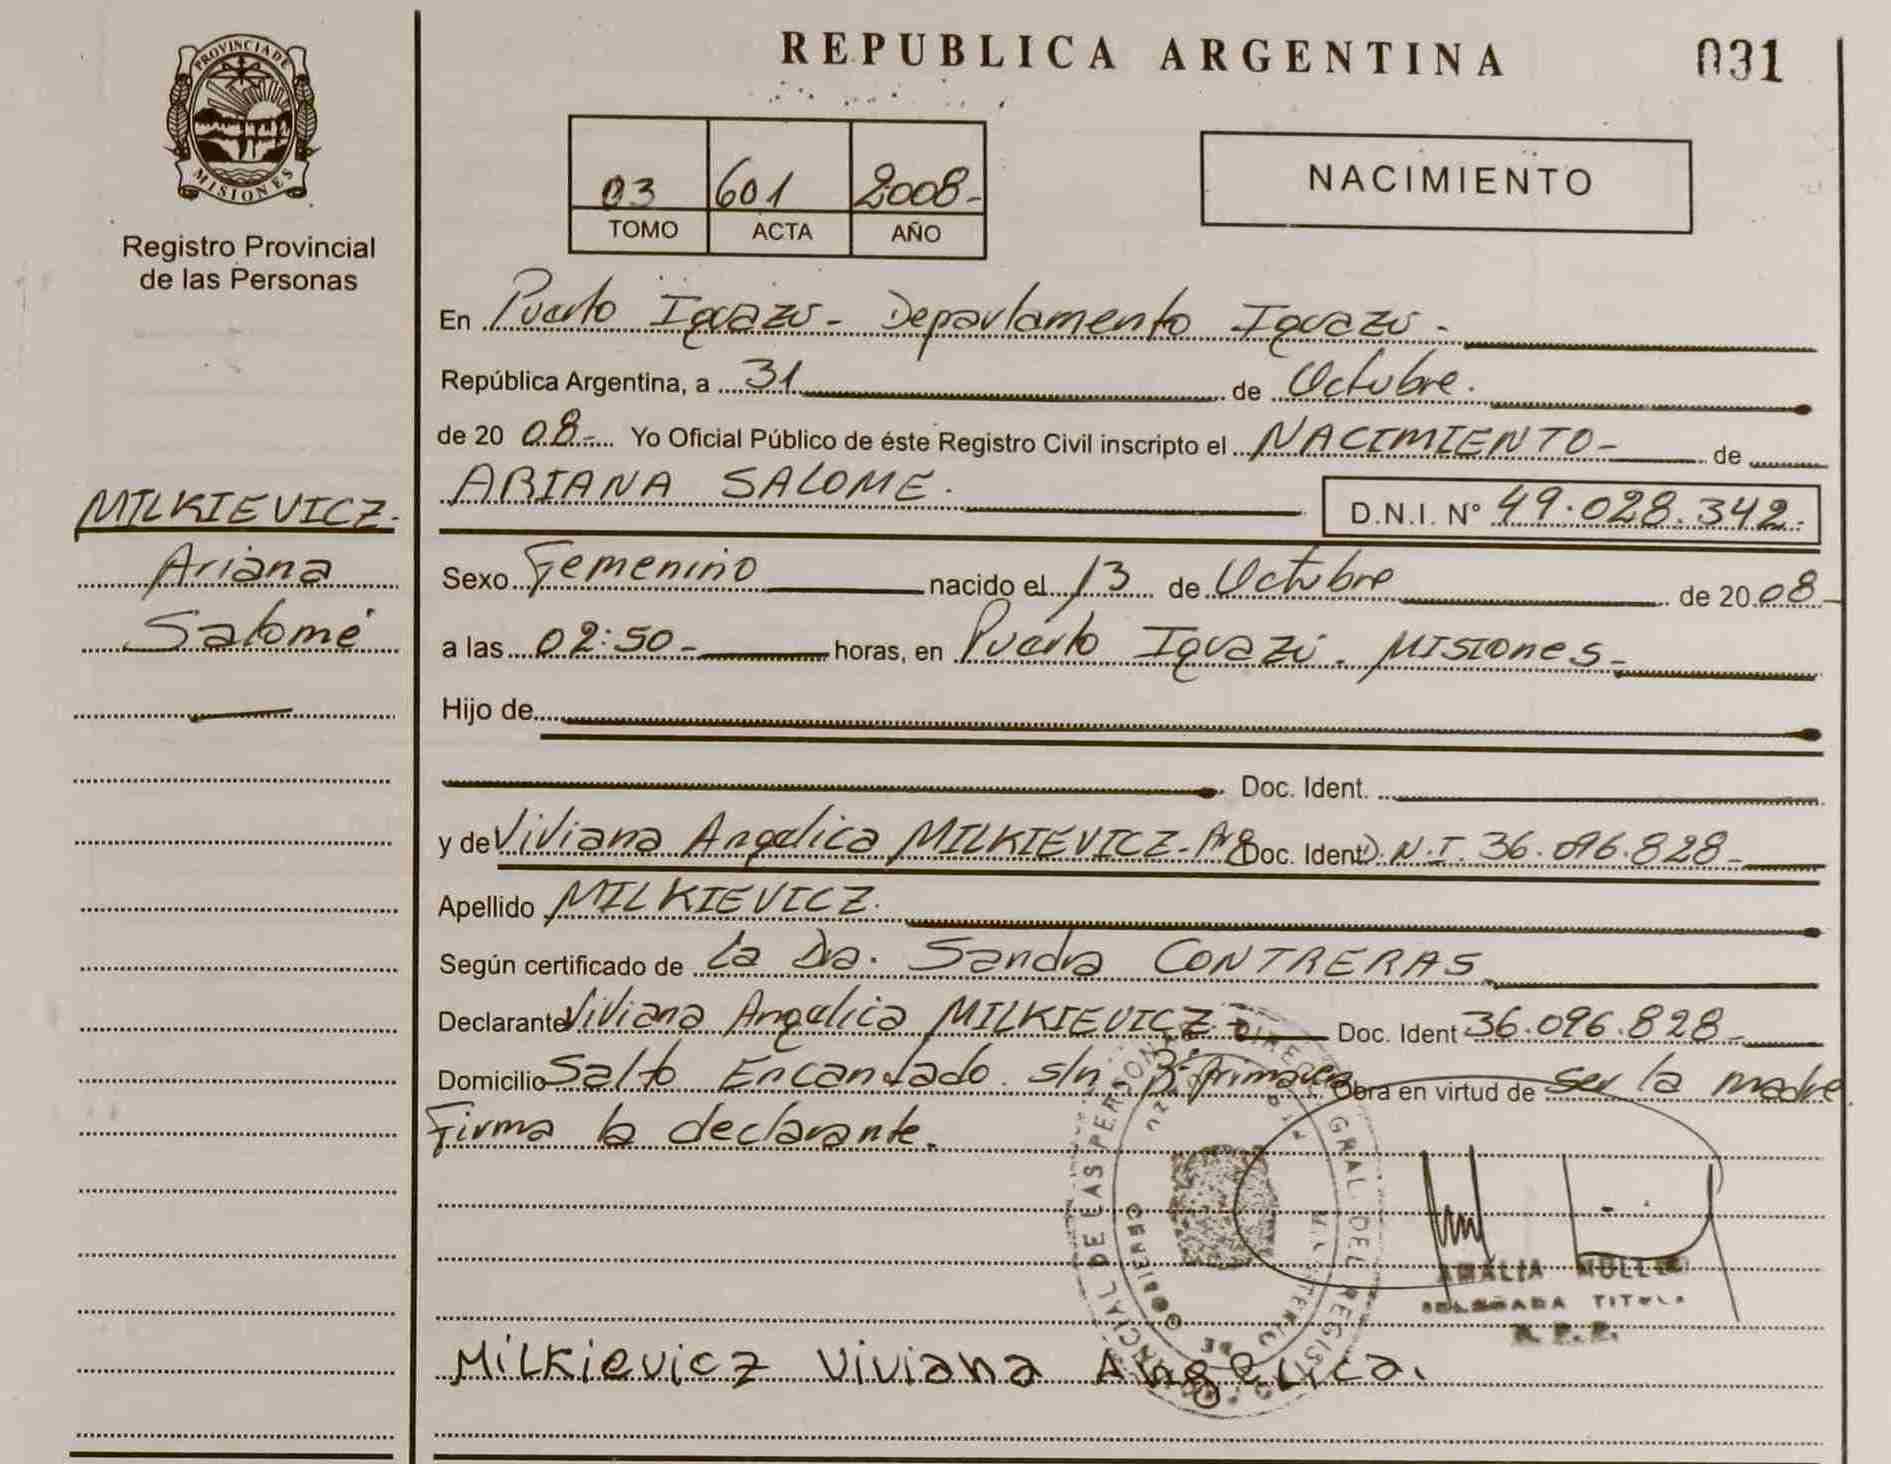 PROVINCIA DE
MISIONES
Registro Provincial
de las Personas
MILKIEVICZ.
Ariana
Salomé
REPUBLICA ARGENTINA
031
03 601 2008-
TOMO ACTA AÑO
NACIMIENTO
En Puerto Iguazú- Departamento Iguazú-
República Argentina, a 31 de Octubre.
de 20 08- Yo Oficial Público de éste Registro Civil inscripto el NACIMIENTO- de
ARIANA SALOME. D.N.I. N° 49.028.342-
Sexo Femenino nacido el 13 de Octubre de 20 08-
a las 02:50- horas, en Puerto Iguazú. Misiones-
Hijo de
Doc. Ident.
y de Viviana Angelica MILKIEVICZ- Arg Doc. Ident D.N.I. 36.096.828-
Apellido MILKIEVICZ.
Según certificado de la Dra. Sandra CONTRERAS
Declarante Viviana Angelica MILKIEVICZ- Doc. Ident 36.096.828-
Domicilio Salto Encantado s/n B° primavera Obra en virtud de ser la madre
Firma la declarante.
DIREC GRAL. DEL REGIST PROVINCIAL DE LAS PERSONAS
MINISTERIO DE GOBIERNO
AMALIA
DELEGADA TITULAR
R. P. P.
Milkievicz Viviana Angelica.